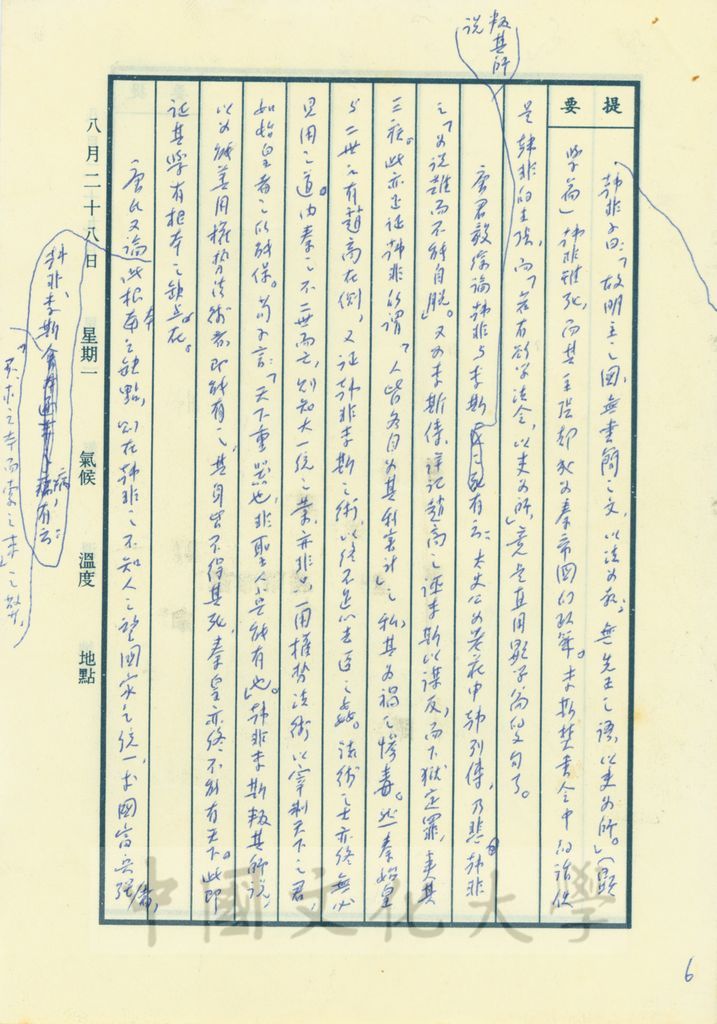 提
要
韓非子曰：「故明主之國，無書簡之文，以法為教；無先王之語，以吏為師。」（顯
學篇）韓非雖死，而其主張卻成為秦帝國的政策。李斯焚書令中的話但
是韓非的主張，而「若有欲學法令，以吏為師」竟是直用顯學篇的文句了。
唐君毅綜論韓非與李斯
叛其所
说
有云：太史公為老莊申韓列傳，乃悲韓非
之「為说難而不能自脫」。又為李斯傳，詳記趙高之誣李斯以謀反，而下獄定罪，夷其
三族。此亦正証韓非所謂「人皆各自為其利害計」之私，其為禍之慘毒。然秦始皇
與二世之有趙高在側，又証韓非李斯之術，以終不足以去近之姦。法術之士亦終無必
見用之道。由秦之不二世而亡，則知大一統之業，亦非只用權勢法術以宰制天下之君，
如始皇者之以能保。荀子言：「天下重器也，非聖人莫能有也」。韓非李斯叛其所说，
以為能善用權勢法術者，即能有之，其身皆不得其死，秦皇亦終不能有天下。此即
証其學有根本之缺点在。
唐氏又論此根本之缺點，則在韓非之不知人之望國家之統一，求國富兵強，
韓非、李斯
病，有云：
「不求之本而索之末」之弊，
八月二十八日
星期一
氣候
溫度
地點
中國文化大學
6